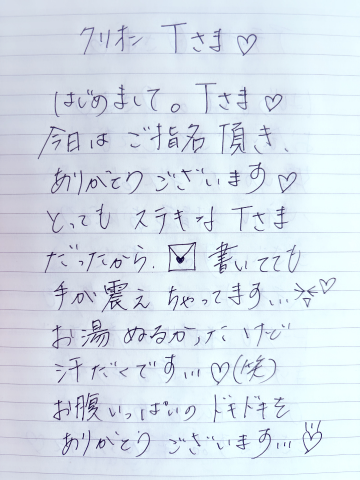 クリオン Tさま♡
はじめまして。Tさま♡
今日は ご指名 頂き、
ありがとう ございます♡
とっても ステキな Tさま
だったから、💌 書いてても
手が震え ちゃってます...♡
お湯 ぬるかったけど
汗だくです...♡(笑)
お腹いっぱいの ドキドキを
ありがとう ございます...♡